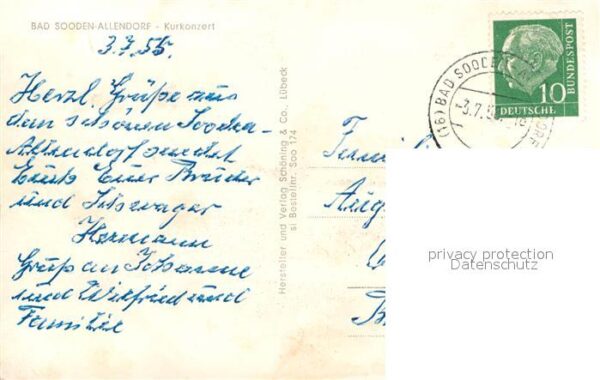 BAD SOODEN-ALLENDORF - Kurkonzert
3.7.55.
Herzl. Grüße aus
dem schönen Sooden-
Allendorf sendet
Euch Euer Bruder
und Schwager
Hermann
Gruß an Johanne
und Wilfried und
Familie
Hersteller und Verlag Schöning & Co., Lübeck
si Bestellnr. Soo 174
10
DEUTSCHE
BUNDESPOST
(16) BAD SOODEN-AL
-3.7.5
Fami
Aug
privacy protection
Datenschutz